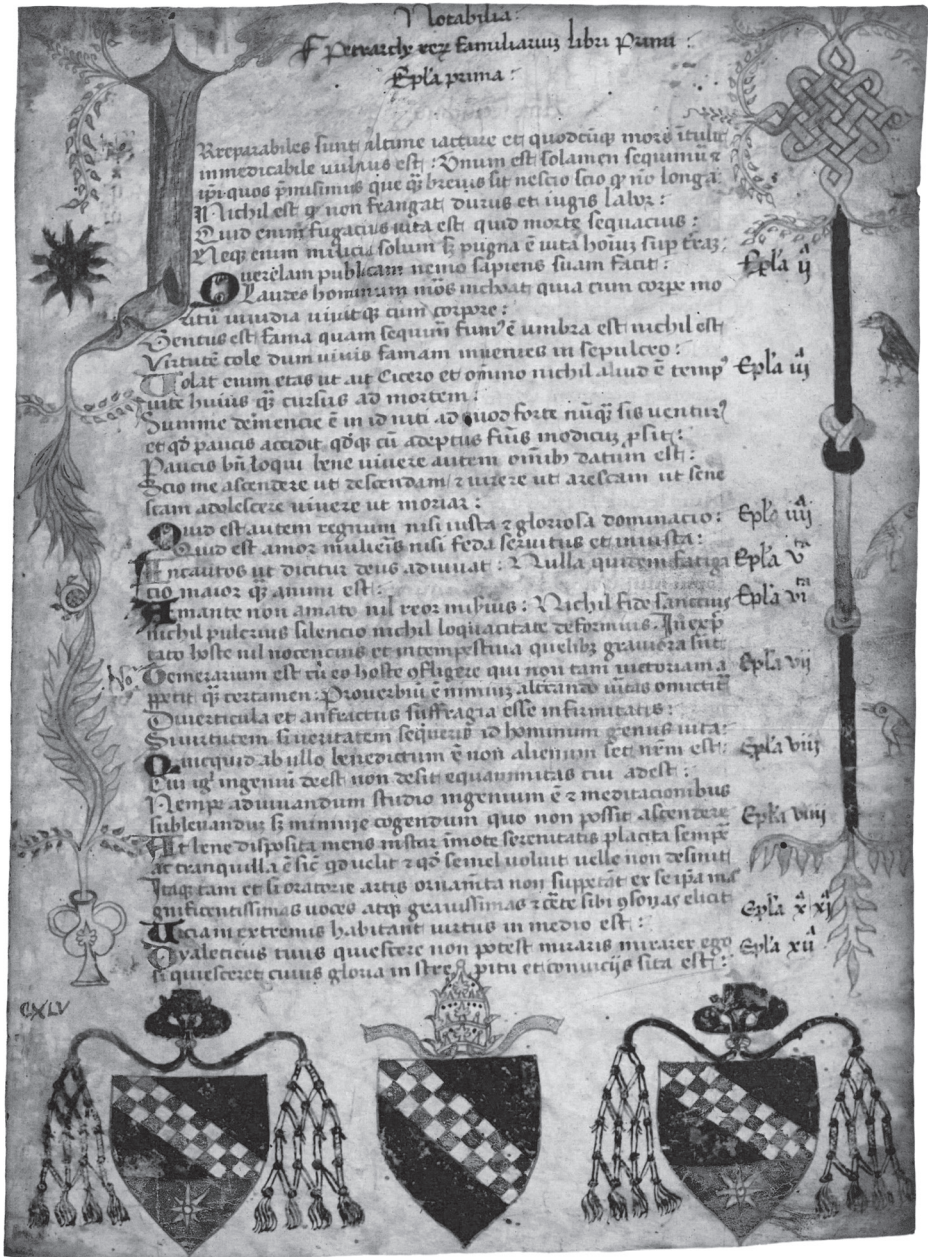 Notabilia:
F Petrarche reꝝ familiariuꝫ libri Primi:
Epl̄a prima:
Rreparabiles sunt ultime iacture et quodcūq mors ītulit
immedicabile vulnus est: Vnum est solamen sequimur ⁊
ip̄i quos p̄misimus que q̄ brevis sit nescio scio qꝫ nō longa:
Nichil est qꝫ non frangat durus et iugis labor:
Quid enim fugacius vita est quid morte sequacius:
Neqꝫ enim milicia solum sꝫ pugna ē vita hoīuꝫ sup terā:
Querelam publicam nemo sapiens suam facit: Epl̄a ij
Laudes hominum mōs inchoat quia cum corpe mo
ritur invidia vivitqꝫ cum corpore:
Ventus est fama quam sequimur fumꝰ ē umbra est nichil est
Virtutē cole dum vivis famam invenies in sepulcro:
Volat enim etas ut ait Cicero et om̄ino nichil aliud ē tempꝰ Epl̄a iij
vite huius q̄ cursus ad mortem:
Summe demencie ē in id niti ad quod forte nūq̄ sis venturꝰ
et qd̄ paucis accidit qd̄qꝫ cū aceptus fuīs modicuꝫ ꝓsit:
Paucis bn̄ loqui bene vivere autem omībꝫ datum est:
Scio me ascendere ut descendam ⁊ virere ut arescam ut sene
scam adolescere vivere ut moriar:
Quid est autem regnum nisi iusta ⁊ gloriosa dominacio: Epl̄a iiij
Quid est amor mulieris nisi feda servitus et iniusta:
Incautos ut dicitur deus adiuvat: Nulla quidem fatiga Epl̄a v
cio maior q̄ animi est:
Amante non amato nil reor : Nichil fide sanctius Epl̄a vi
nichil pulcrius silencio nichil loquacitate deformius. In exp̄
tato hoste nil nocencius et intempestiva quelibꝫ graviora sūt
No. Temerarium est cū eo hoste ꝯfligere qui non tam victoriam a Epl̄a vij
ppetit q̄ certamen: Proverbiū ē nimiuꝫ altercando v̄itas omictit
Diverticula et anfractus suffragia esse infirmitatis:
Si virtutem si veritatem sequeris id hominum genus vita:
Quicquid ab ullo benedictum ē non alienum set nr̄m est: Epl̄a viij
Cui igꝉ ingeniū deest non desit equanimitas cui adest:
Nempe adiuvandum studio ingenium ē ⁊ meditacionibus
sublevanduꝫ sꝫ minime cogendum quo non possit ascendere Epl̄a viiij
At bene disposita mens instar īmote serenitatis placita semper
ac tranquilla ē sic̄ qd velit ⁊ qd̄ semel voluit velle non desinit
Itaqꝫ tam et si oratorie artis ornam̄ta non suppetāt ex se ip̄a ma
gnificentissimas voces atqꝫ gravissimas ⁊ cērte sibi ꝯsonas elicit Epl̄a x xi
Viciam extremis habitant virtus in medio est:
Dyaleticus tuus quiescere non potest miraris mirarer ego Epl̄a xii
si quiesceret cuius gloria in strepitu et convicijs sita est:
CXLV